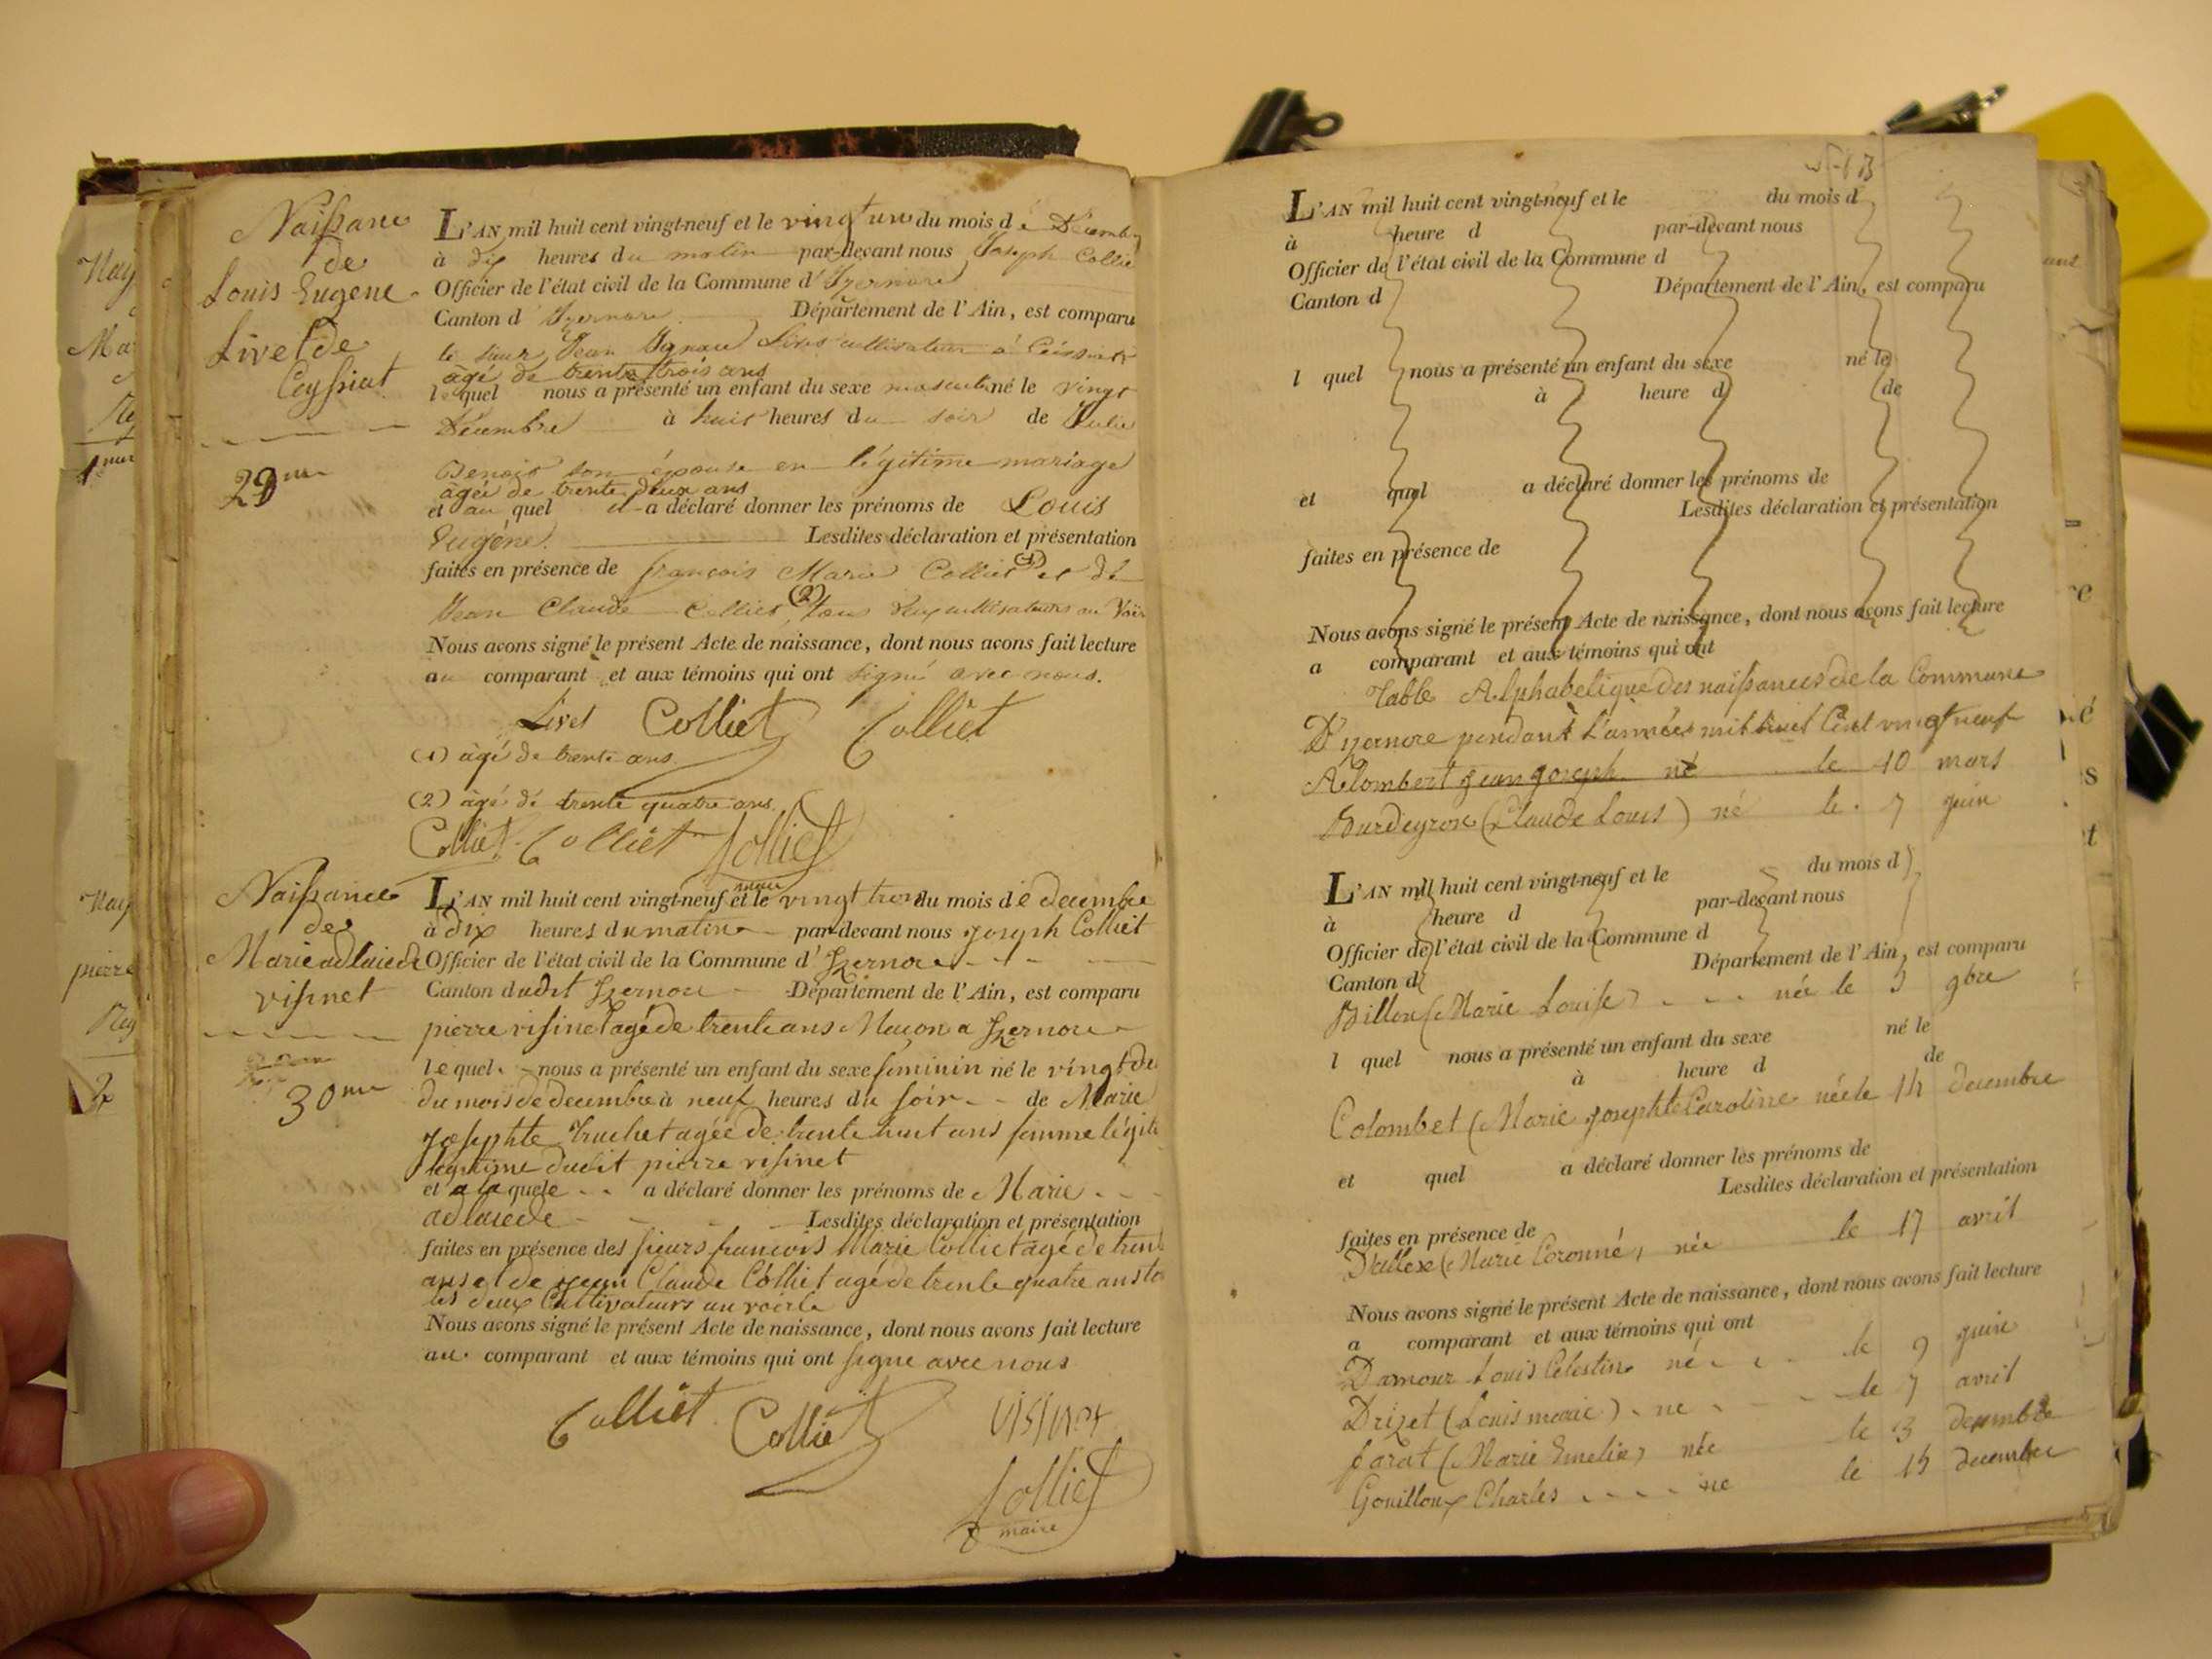 Naissance
de
Louis Eugene
Livet de
Ceyssiat
29me
L'AN mil huit cent vingt-neuf et le vingt un du mois de Décembre
à dix heures du matin par-devant nous Joseph Colliet
Officier de l'état civil de la Commune d'Izernore
Canton d'Izernore Département de l'Ain, est comparu
le sieur Jean Ignace Livet cultivateur à Ceissiat
âgé de trente trois ans
lequel nous a présenté un enfant du sexe masculin né le vingt
Décembre à huit heures du soir de Julie
Benoit son épouse en légitime mariage
âgée de trente deux ans
et au quel il a déclaré donner les prénoms de Louis
Eugène. Lesdites déclaration et présentation
faites en présence de françois Marie Colliet (1) et de
Jean Claude Colliet (2), tous deux cultivateurs au
Nous avons signé le présent Acte de naissance, dont nous avons fait lecture
au comparant et aux témoins qui ont signé avec nous.
Livet Colliet Colliet
(1) âgé de trente ans
(2) âgé de trente quatre ans.
Colliet Colliet Colliet
maire
Naissance
de
Marie adlaiede
visinet
30me
L'AN mil huit cent vingt-neuf et le vingt trois du mois de decembre
à dix heures du matin par-devant nous joseph Colliet
Officier de l'état civil de la Commune d'Izernore
Canton dudit Izernore Département de l'Ain, est comparu
pierre visinet agé de trente ans Maçon a Izernore
lequel nous a présenté un enfant du sexe feminin né le vingt de
du mois de decembre à neuf heures du soir de Marie
josephte truchet agée de trente huit ans femme légiti
legitime dudit pierre visinet
et a la quele a déclaré donner les prénoms de Marie
adlaiede Lesdites déclaration et présentation
faites en présence des sieurs francois Marie Colliet agé de trent
ans et de jean Claude Colliet agé de trente quatre ans to
les deux Cultivateurs au voerle
Nous avons signé le présent Acte de naissance, dont nous avons fait lecture
au comparant et aux témoins qui ont signe avec nous
Colliet Colliet visinet
Colliet
maire
L'AN mil huit cent vingt-neuf et le du mois d
à heure d par-devant nous
Officier de l'état civil de la Commune d
Canton d Département de l'Ain, est comparu
l quel nous a présenté un enfant du sexe né le
à heure d de
et quel a déclaré donner les prénoms de
Lesdites déclaration et présentation
faites en présence de
Nous avons signé le présent Acte de naissance, dont nous avons fait lecture
a comparant et aux témoins qui ont
Table Alphabetique des naissances de la Commune
D'yzernore pendant L'année mil huit Cent vingt neuf
Alombert jean joseph né le 10 mars
Burdeyron (Claude Louis) né le 7 juin
L'AN mil huit cent vingt-neuf et le du mois d
à heure d par-devant nous
Officier de l'état civil de la Commune d
Canton d Département de l'Ain, est comparu
Billon (Marie Louise) née le 3 9bre
l quel nous a présenté un enfant du sexe né le
à heure d de
Colombet (Marie josephte Caroline née le 14 decembre
et quel a déclaré donner les prénoms de
Lesdites déclaration et présentation
faites en présence de
(Marie née le 17 avril
Nous avons signé le présent Acte de naissance, dont nous avons fait lecture
a comparant et aux témoins qui ont
Damour Louis Célestin né le 9 juin
Drizet (Louis marie) né le 7 avril
farat (Marie Emelie) née le 3 decembre
Gouilloux Charles né le 15 decembre